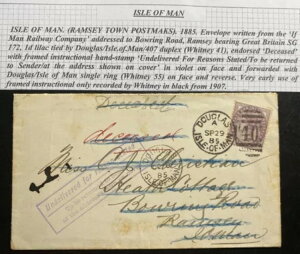 ISLE OF MAN
ISLE OF MAN. (RAMSEY TOWN POSTMAKS). 1885. Envelope written from the 'If
Man Railway Company' addressed to Bowring Road, Ramsey bearing Great Britain SG
172, 1d lilac tied by Douglas/Isle of Man/407 duplex (Whitney 41), endorsed 'Deceased'
with framed instructional hand-stamp 'Undelivered For Reasons Stated/To be returned
to Sender/at the address shown on cover' in violet on face and forwarded with
Douglas/Isle of Man single ring (Whitney 55) on face and reverse. Very early use of
framed instructional only recorded by Whitney in black from 1907.
Deceased
DOUGLAS
A
SP 29
85
ISLE-OF-MAN
deceased
Miss
Heath Cottage
Bowring Road
Ramsey
Undelivered for
85
ISLE OF MAN